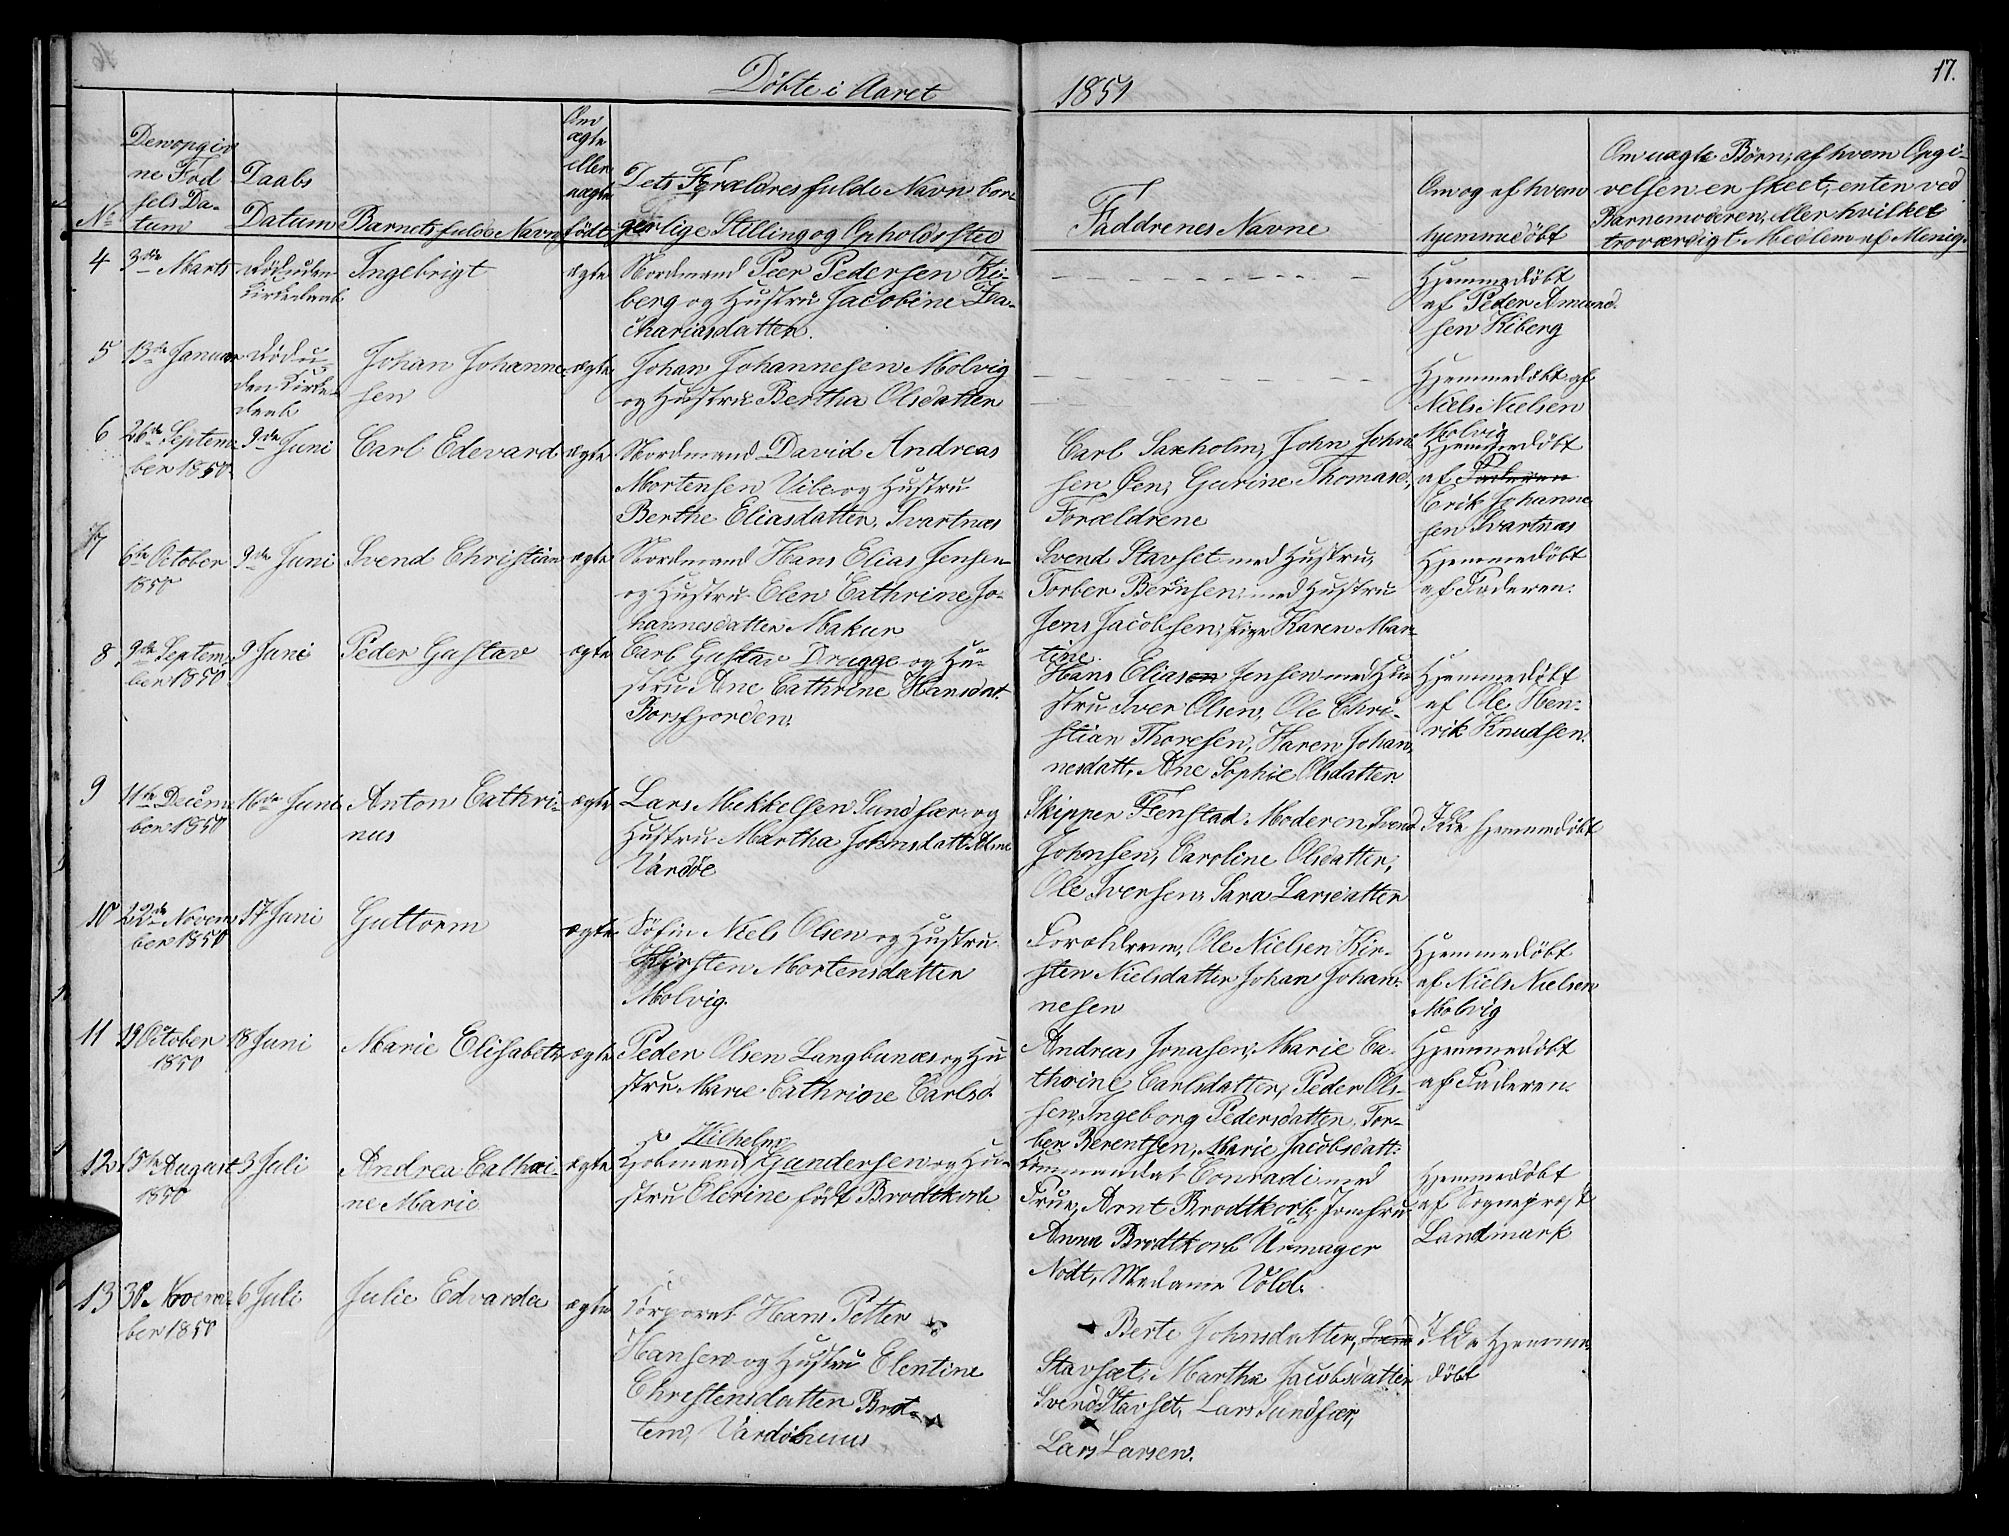 Døbte i Aaret 1851
17.
No
Den opgivne Fødsels Datum
Daabs Datum
Barnets fulde Navn
Om ægte eller uægte født
Dets Forældres fulde Navn borgerlige Stilling og Opholdssted
Faddrenes Navne
Om og af hvem hjemmedøbt
Om uægte Børn; af hvem Opgivelsen er skeet; enten ved Barnemoderen; eller hvilket troværdigt Medlem af Menig.
4
3de Marts
død uden
Kirkedaab
Ingebrigt
ægte
Nordmand Peer Pedersen Ki-
berg og Hustru Jacobine Za-
chariasdatter.
Hjemmedøbt
af Peder Amund
sen Kiberg
5
13de Januar
død u-
den Kirke-
daab
Johan Johanne-
sen
ægte
Johan Johannesen Molvig
og Hustru Bertha Olsdatter
Hjemmedøbt af
Niels Nielsen
Molvig
6
26de Septem-
ber 1850
9de Juni
Carl Edevard
ægte
Nordmand David Andreas
Mortensen Vibe og Hustru
Berthe Eliasdatter, Svartnæs
Carl Saxholm, John John-
sen Øen, Gurine Thomasd,
Forældrene
Hjemmedøbt
af Faderen
Erik Johanne
sen Svartnæs
7
6te October
1850
9de Juni
Svend Christian
ægte
Nordmand Hans Elias Jensen
og Hustru Elen Cathrine Jo-
hannesdatter Makur
Svend Stavset med Hustru,
Torber Bernsen med Hustru
Jens Jacobsen, Pige Karen Mar-
tine
Hjemmedøbt
af Faderen.
8
9de Septem-
ber 1850
9 Juni
Peder Gustav
ægte
Carl Gustav Drugge og Hu-
stru Ane Cathrine Hansdat.
Borsfjorden.
Hans Eliasen Jensen med Hu-
stru Iver Olsen, Ole Chri-
stian Thoresen, Karen Johan-
nesdatt, Ane Sophie Olsdatter
Hjemmedøbt
af Ole Hen-
rik Knudsen.
9
11te Decem-
ber 1850
16de Juni
Anton Cathri-
nus
ægte
Lars Mikkelsen Sundfær og
Hustru Martha Johnsdatt.
Vardøe
Skipper Fenstad Moderen Svend
Johnsen, Caroline Olsdatter,
Ole Iversen, Sara Larsdatter
Ikke hjemmedøbt
10
22de Novem-
ber 1850
17 Juni
Guttorm
ægte
Søfin Niels Olsen og Hustru
Kirsten Mortensdatter
Molvig.
Forældrene, Ole Nielsen Kir-
sten Nielsdatter Johan Johan-
nesen
Hjemmedøbt
af Niels Nielsen
Molvig
11
19 October
1850
18 Juni
Marie Elisabeth
ægte
Peder Olsen Langbunæs og Hu
stru Marie Cathrine Carlsd.
Andreas Jonasen, Marie Ca-
thrine Carlsdatter, Peder Ol-
sen, Ingeborg Pedersdatter, Tor-
ber Berentsen, Marie Jacobsdatt:
Hjemmedøbt
af Faderen.
12
15de August
1850
3 Juli
Andrea Cathri-
ne Marie
ægte
Wilhelm
Kjøbmand Gundersen og Hu-
stru Elerine født Brodtkorb
Commandat Conradi med
Frue, Arnt Brodtkorb, Jomfru
Anna Brodtkorb Urmager
Nodt, Madame Vold.
Hjemmedøbt
af Sognepræst
Landmark
13
30 Novem-
ber 1850
6 Juli
Julie Edvarda
ægte
Corporal Hans Petter
Hansen og Hustru Elentine
Christensdatter Brat-
tem, Vardøhuus
Berte Johnsdatter, Svend
Stavset, Martha Jacobsdatter
Svend Stavset, Lars Sundfær,
Lars Larsen.
Ikke hjemme-
døbt